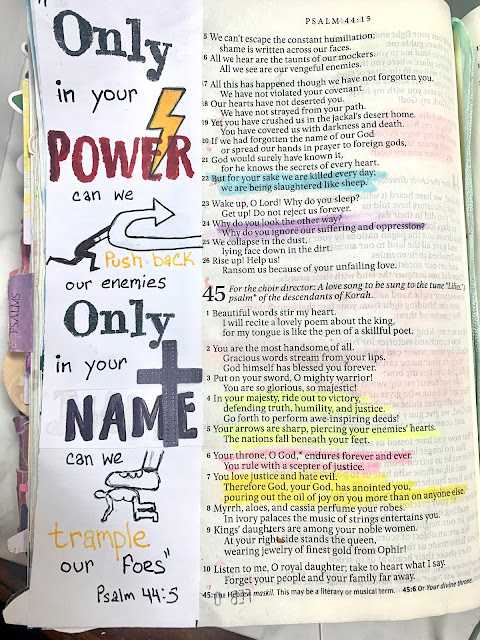 Only
in your
POWER
can we
Push back
our enemies
Only
in your
NAME
can we
trample
our "Foes"
Psalm 44:5
PSALMS
PSALM 44:15
15 We can't escape the constant humiliation;
shame is written across our faces.
16 All we hear are the taunts of our mockers.
All we see are our vengeful enemies.
17 All this has happened though we have not forgotten you.
We have not violated your covenant.
18 Our hearts have not deserted you.
We have not strayed from your path.
19 Yet you have crushed us in the jackal's desert home.
You have covered us with darkness and death.
20 If we had forgotten the name of our God
or spread our hands in prayer to foreign gods,
21 God would surely have known it,
for he knows the secrets of every heart.
22 But for your sake we are killed every day;
we are being slaughtered like sheep.
23 Wake up, O Lord! Why do you sleep?
Get up! Do not reject us forever.
24 Why do you look the other way?
Why do you ignore our suffering and oppression?
25 We collapse in the dust,
lying face down in the dirt.
26 Rise up! Help us!
Ransom us because of your unfailing love.
45 For the choir director: A love song to be sung to the tune "Lilies."
psalm* of the descendants of Korah.
1 Beautiful words stir my heart.
I will recite a lovely poem about the king,
for my tongue is like the pen of a skillful poet.
2 You are the most handsome of all.
Gracious words stream from your lips.
God himself has blessed you forever.
3 Put on your sword, O mighty warrior!
You are so glorious, so majestic!
4 In your majesty, ride out to victory,
defending truth, humility, and justice.
Go forth to perform awe-inspiring deeds!
5 Your arrows are sharp, piercing your enemies' hearts.
The nations fall beneath your feet.
6 Your throne, O God,* endures forever and ever.
You rule with a scepter of justice.
7 You love justice and hate evil.
Therefore God, your God, has anointed you,
pouring out the oil of joy on you more than on anyone else.
8 Myrrh, aloes, and cassia perfume your robes.
In ivory palaces the music of strings entertains you.
9 Kings' daughters are among your noble women.
At your right side stands the queen,
wearing jewelry of finest gold from Ophir!
10 Listen to me, O royal daughter; take to heart what I say.
Forget your people and your family far away.
Hebrew maskil. This may be a literary or musical term. 45:6 Or Your divine throne.